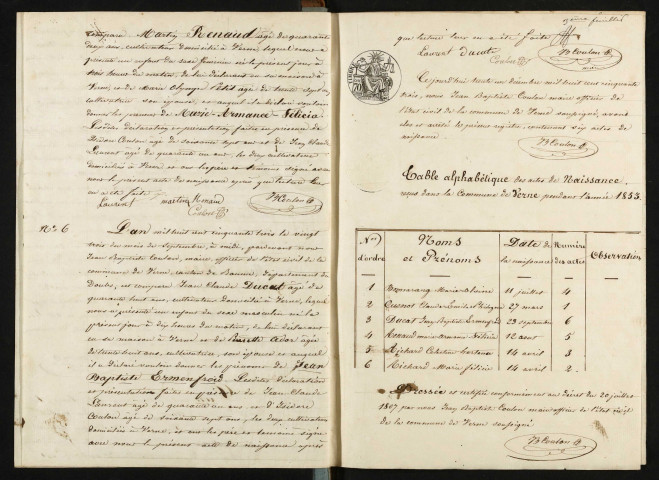 comparu Martin Renaud âgé de quarante
deux ans, cultivateur domicilié à Verne, lequel nous a
présenté un enfant du sexe féminin née le présent jour, à
huit heures du matin, de lui déclarant en sa maison à
Verne, et de Marie Olympe Petit âgée de trente sept ans
cultivatrice son épouse, et auquel il a déclaré vouloir
donner les prénoms de Marie-Armance-Félicia.
Lesdites déclaration et présentation faites en présence de
Isidore Coulon âgé de soixante sept ans et de Jean Claude
Laurent âgé de quarante un ans, les deux cultivateurs
domiciliés à Verne et ont les père et témoins signé avec
nous le présent acte de naissance après que lecture leur
en a été faite
Laurent martin Renaud
Coulon
JBCoulon
N° 6 L'an mil huit cent cinquante trois le vingt
trois du mois de septembre, à midi, pardevant nous
Jean Baptiste Coulon, maire officier de l'état civil de la
commune de Verne, canton de Baume, département du
Doubs, est comparu Jean Claude Ducat âgé de
quarante huit ans, cultivateur domicilié à Verne, lequel
nous a présenté un enfant du sexe masculin né le
présent jour à dix heures du matin, de lui déclarant
en sa maison à Verne et de
de trente huit ans, cultivatrice, son épouse et auquel
il a déclaré vouloir donner les prénoms de Jean
Baptiste Ermenfroid. Lesdites déclaration
et présentation faites en présence de Jean Claude
Laurent âgé de quarante un ans et d'Isidore
Coulon âgé de soixante sept ans, les deux cultivateurs
domiciliés à Verne, et ont les père et témoins signé
avec nous le présent acte de naissance après
que lecture leur en a été faite
Laurent Ducat
Coulon
JBCoulon
Cejourd'hui trente un décembre mil huit cent cinquante
trois, nous Jean Baptiste Coulon maire officier de
l'état civil de la commune de Verne soussigné, avons
clos et arrêté le présent registre, contenant six actes de
naissance.
JBCoulon
Table alphabétique des actes de Naissance,
reçus dans la Commune de Verne pendant l'année 1853.
Nos d'ordre Noms et Prénoms Date de la naissance Numéro des actes Observation
1 11 juillet 4
2 Cuenot 27 mars 1
3 Ducat Jean Baptiste Ermenfroid 23 septembre 6
4 Renaud marie armance Félicia 12 août 5
5 Richard 14 avril 3
6 Richard Marie félicie 14 avril 2
Dressée et certifiée conformément au décret du 20 juillet
1807 par nous Jean Baptiste Coulon maire officier de l'état civil
de la commune de Verne soussigné
JBCoulon